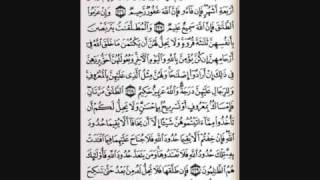 أَرْبَعَةِ أَشْهُرٍ فَإِن فَآءُو فَإِنَّ ٱللَّهَ غَفُورٌ رَّحِيمٌ ٢٢٦ وَإِنْ عَزَمُوا۟
ٱلطَّلَٰقَ فَإِنَّ ٱللَّهَ سَمِيعٌ عَلِيمٌ ٢٢٧ وَٱلْمُطَلَّقَٰتُ يَتَرَبَّصْنَ
بِأَنفُسِهِنَّ ثَلَٰثَةَ قُرُوٓءٍ وَلَا يَحِلُّ لَهُنَّ أَن يَكْتُمْنَ مَا خَلَقَ ٱللَّهُ
فِىٓ أَرْحَامِهِنَّ إِن كُنَّ يُؤْمِنَّ بِٱللَّهِ وَٱلْيَوْمِ ٱلْءَاخِرِ وَبُعُولَتُهُنَّ أَحَقُّ بِرَدِّهِنَّ
فِى ذَٰلِكَ إِنْ أَرَادُوٓا۟ إِصْلَٰحًا وَلَهُنَّ مِثْلُ ٱلَّذِى عَلَيْهِنَّ بِٱلْمَعْرُوفِ
وَلِلرِّجَالِ عَلَيْهِنَّ دَرَجَةٌ وَٱللَّهُ عَزِيزٌ حَكِيمٌ ٢٢٨ ٱلطَّلَٰقُ مَرَّتَانِ
فَإِمْسَاكٌۢ بِمَعْرُوفٍ أَوْ تَسْرِيحٌۢ بِإِحْسَٰنٍ وَلَا يَحِلُّ لَكُمْ أَن
تَأْخُذُوا۟ مِمَّآ ءَاتَيْتُمُوهُنَّ شَيْـًٔا إِلَّآ أَن يَخَافَآ أَلَّا يُقِيمَا حُدُودَ
ٱللَّهِ فَإِنْ خِفْتُمْ أَلَّا يُقِيمَا حُدُودَ ٱللَّهِ فَلَا جُنَاحَ عَلَيْهِمَا فِيمَا ٱفْتَدَتْ
بِهِۦ تِلْكَ حُدُودُ ٱللَّهِ فَلَا تَعْتَدُوهَا وَمَن يَتَعَدَّ حُدُودَ ٱللَّهِ فَأُو۟لَٰٓئِكَ
هُمُ ٱلظَّٰلِمُونَ ٢٢٩ فَإِن طَلَّقَهَا فَلَا تَحِلُّ لَهُۥ مِنۢ بَعْدُ حَتَّىٰ تَنكِحَ